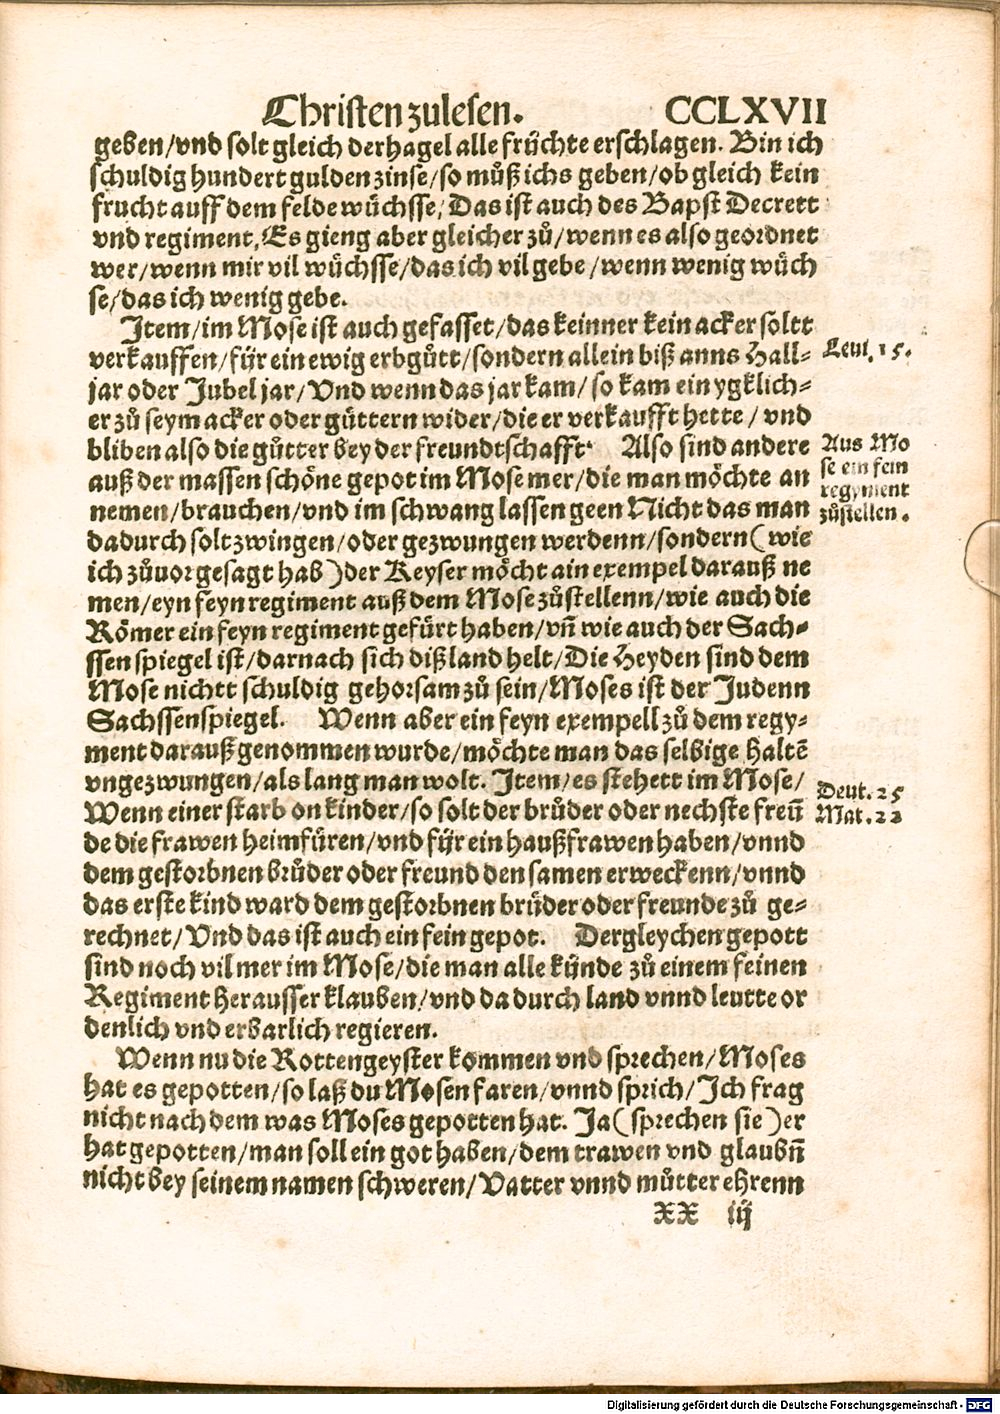 Christen zulesen. CCLXVII
geben/vnd solt gleich der hagel alle früchte erschlagen. Bin ich
schuldig hundert gulden zinse/so můß ichs geben/ob gleich kein
frucht auff dem felde wůchsse/Das ist auch des Bapst Decrett
vnd regiment, Es gieng aber gleicher zů/wenn es also geordnet
wer/wenn mir vil wůchsse/das ich vil gebe/wenn wenig wůch
se/das ich wenig gebe.
Item/im Mose ist auch gefasset/das keinner kein acker soltt
verkauffen/für ein ewig erbgůtt/sondern allein biß anns Hall-
jar oder Jubel jar/Vnd wenn das jar kam/so kam ein ygklich-
er zů seym acker oder gůttern wider/die er verkaufft hette/vnd
bliben also die gůtter bey der freundtschafft. Also sind andere
auß der massen schöne gepot im Mose mer/die man möchte an
nemen/brauchen/vnd im schwang lassen geen Nicht das man
dadurch solt zwingen/oder gezwungen werdenn/sondern (wie
ich zůuor gesagt hab) der Keyser möcht ain exempel darauß ne
men/eyn feyn regiment auß dem Mose zůstellenn/wie auch die
Römer ein feyn regiment gefürt haben/vñ wie auch der Sach-
ssen spiegel ist/darnach sich diß land helt/Die Heyden sind dem
Mose nichtt schuldig gehorsam zů sein/Moses ist der Judenn
Sachssenspiegel. Wenn aber ein feyn exempell zů dem regy-
ment darauß genommen wurde/möchte man das selbige haltē
vngezwungen/als lang man wolt. Item/es stehett im Mose/
Wenn einer starb on kinder/so solt der brůder oder nechste freũ
de die frawen heimfüren/vnd für ein haußfrawen haben/vnnd
dem gestorbnen brůder oder freund den samen erweckenn/vnnd
das erste kind ward dem gestorbnen brůder oder freunde zů ge-
rechnet/Vnd das ist auch ein fein gepot. Dergleychen gepott
sind noch vil mer im Mose/die man alle künde zů einem feinen
Regiment herausser klauben/vnd da durch land vnnd leutte or
denlich vnd erbarlich regieren.
Wenn nu die Rottengeyster kommen vnd sprechen/Moses
hat es gepotten/so laß du Mosen faren/vnnd sprich/Ich frag
nicht nach dem was Moses gepotten hat. Ja (sprechen sie) er
hat gepotten/man soll ein got haben/dem trawen vnd glaubñ
nicht bey seinem namen schweren/Vatter vnnd můtter ehrenn
XX iij
Leui. 15.
Aus Mo
se ein fein
regyment
zůstellen.
Deut. 25
Mat. 22
Digitalisierung gefördert durch die Deutsche Forschungsgemeinschaft - DFG